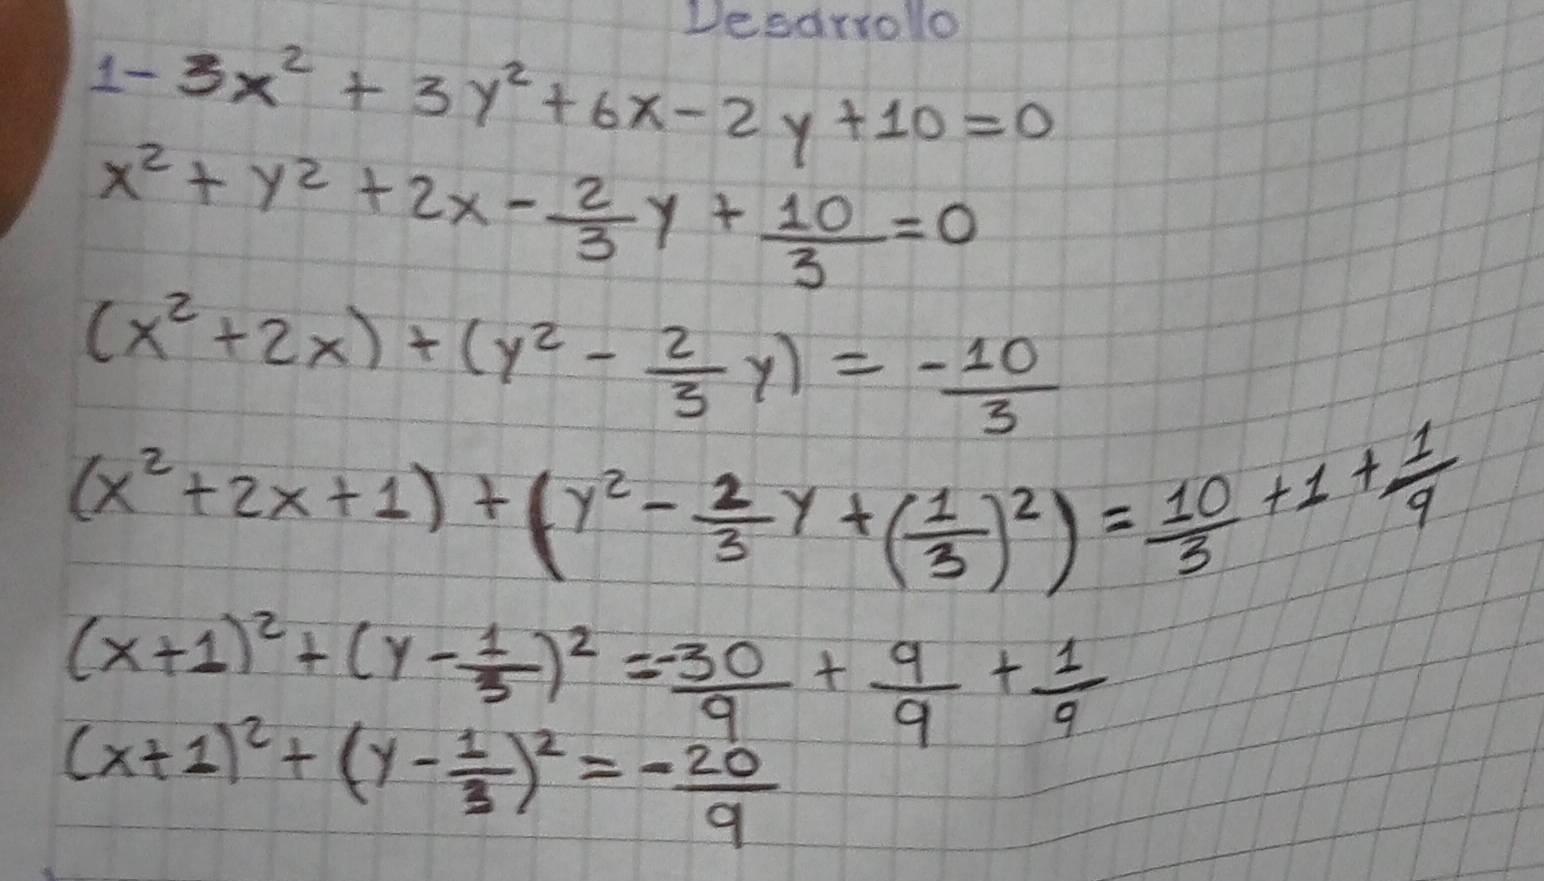 Desarrollo
1- 3x² + 3y² + 6x - 2y + 10 = 0
x² + y² + 2x - 2/3 y + 10/3 = 0
(x² + 2x) + (y² - 2/3 y) = -10/3
(x² + 2x + 1) + (y² - 2/3 y + (1/3)²) = 10/3 + 1 + 1/9
(x+1)² + (y - 1/3)² = -30/9 + 9/9 + 1/9
(x+1)² + (y - 1/3)² = -20/9